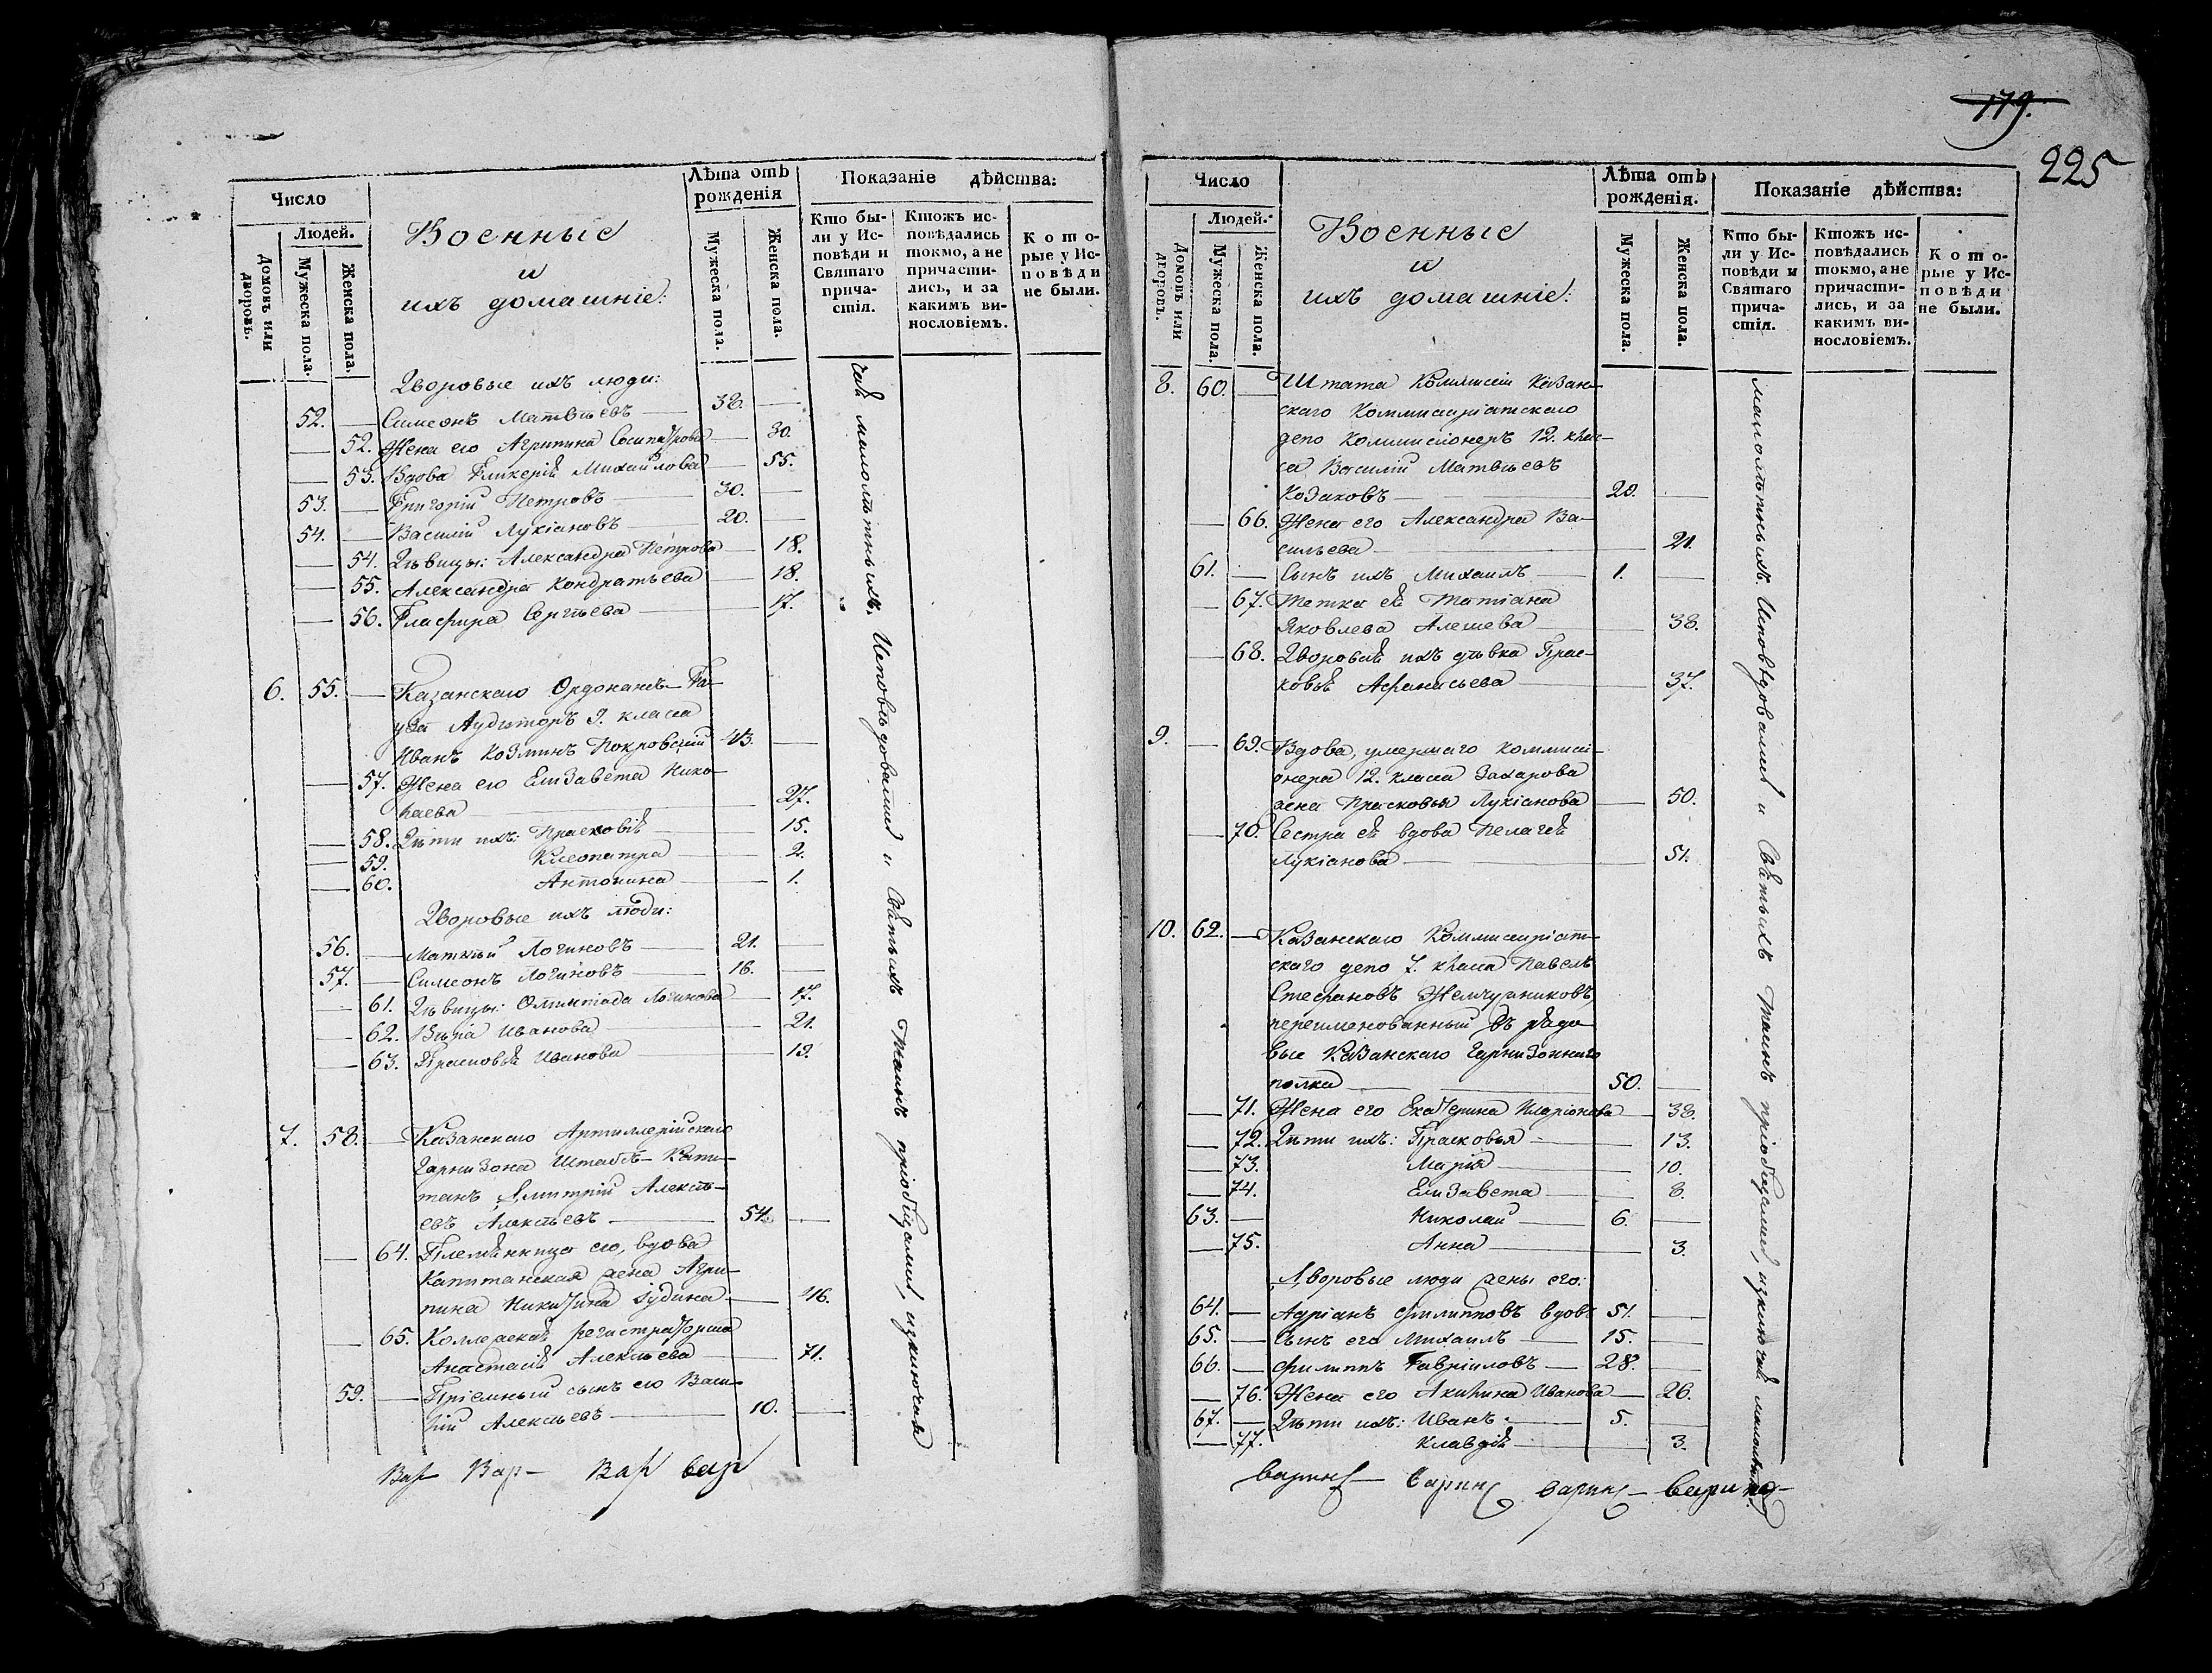 Число
Людей.
Домовъ или дворовъ.
Мужеска пола.
Женска пола.
Военные
и
ихъ домашніе:
Лѣта отъ рожденія
Мужеска пола.
Женска пола.
Показаніе дѣйства:
Кто бы-
ли у Ис-
повѣди и
Святаго
прича-
стія.
Ктожъ ис-
повѣдались
токмо, а не
причасти-
лись, и за
какимъ ви-
нословіемъ.
Кото-
рые у Ис-
повѣди
не были.
Дворовые ихъ люди:
52. — Симеонъ Матвѣевъ — 38. —
— 52. Жена его Агрипина Сосипатрова — 30.
— 53. Вдова Гликерія Михайлова — 55.
53. — Григорій Петровъ — 30. —
54. — Василій Лукіановъ — 20. —
— 54. Дѣвицы: Александра Петрова — 18.
— 55. Александра Кондратьева — 18.
— 56. Глафира Сергѣева — 17.
6. 55. — Казанскаго Ордонанъ-Га-
уза Аудиторъ 9. класса
Иванъ Козминъ Покровскій 43. —
— 57. Жена его Елизавета Нико-
лаева — 27.
— 58. Дѣти ихъ: Прасковія — 15.
— 59. Клеопатра — 2.
— 60. Антонина — 1.
Дворовые ихъ люди:
56. — Матвѣй Логиновъ — 21. —
57. — Симеонъ Логиновъ — 16. —
— 61. Дѣвицы: Олимпіада Логинова — 17.
— 62. Вѣра Иванова — 21.
— 63. Прасковія Иванова — 19.
7. 58. — Казанскаго Артиллерійскаго
Гарнизона Штабсъ-Капи-
танъ Дмитрій Алексѣ-
евъ Алексѣевъ — 54. —
— 64. Племянница его, вдова
Капитанская жена Агри-
пина Никитина — 46.
— 65. Коллежская регистраторша
Анастасія Алексѣева — 71.
59. — Пріемный сынъ его Васи-
лій Алексѣевъ — 10. —
сія малолѣтныхъ. Исповѣдовались и Святыхъ Таинъ пріобщались, изключая
Вар Вар- Вар вар
179.
225
Число
Людей.
Домовъ или дворовъ.
Мужеска пола.
Женска пола.
Военные
и
ихъ домашніе:
Лѣта отъ рожденія.
Мужеска пола.
Женска пола.
Показаніе дѣйства:
Кто бы-
ли у Ис-
повѣди и
Святаго
прича-
стія.
Ктожъ ис-
повѣдались
токмо, а не
причасти-
лись, и за
какимъ ви-
нословіемъ.
Кото-
рые у Ис-
повѣди
не были.
8. 60. — Штата Коммисіи Казан-
скаго Коммисаріатскаго
депо Коммисіонеръ 12. клас-
са Василій Матвѣевъ
Козаковъ — 29. —
— 66. Жена его Александра Ва-
сильева — 21.
61. — Сынъ ихъ Михаилъ — 1. —
— 67. Тетка ея Татіана
Яковлева Алешева — 38.
— 68. Дворовая ихъ дѣвка Прас-
ковья Афанасьева — 37.
9. — 69. Вдова, умершаго коммисі-
онера 12. класса Захарова
жена Прасковья Лукіанова — 50.
— 70. Сестра ея вдова Пелагея
Лукіанова — 51.
10. 62. — Казанскаго Коммисаріат-
скаго депо 7. класса Павелъ
Стефановъ Жемчужниковъ
переименованный въ рядо-
вые Казанскаго Гарнизоннаго
полка — 50. —
— 71. Жена его Екатерина Иларіонова — 38.
— 72. Дѣти ихъ: Прасковья — 13.
— 73. Марія — 10.
— 74. Елизавета — 8.
63. — Николай — 6. —
— 75. Анна — 3.
Дворовые люди жены его:
64. — Адріанъ Филипповъ вдовъ 51. —
65. — Сынъ его Михаилъ — 15. —
66. — Филиппъ Гавріиловъ — 28. —
— 76. Жена его Акилина Иванова — 26.
67. — Дѣти ихъ: Иванъ — 5. —
— 77. Клавдія — 3.
малолѣтныхъ. Исповѣдовались и Святыхъ Таинъ пріобщались, изключая малолѣтныхъ